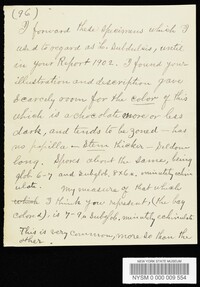 (96)
I forward these specimens which I
used to regard as the subdulcis, until
in your Report 1902. I found your
illustration and description gave
scarcely room for the color of this
which is a chocolate more or less
dark, and tends to be zoned - has
no papilla - stem thicker - seldom
long. Spores about the same, being
glob 6-7 and subglob, 8x6 a. minutely echin
ulate. My measure of that which
which I think you represent, (the bay
colored), is 7-9 a subglob, minutely echinulate.
This is very common, more so than the
other.
NEW YORK STATE MUSEUM
NYSM 0 000 009 554